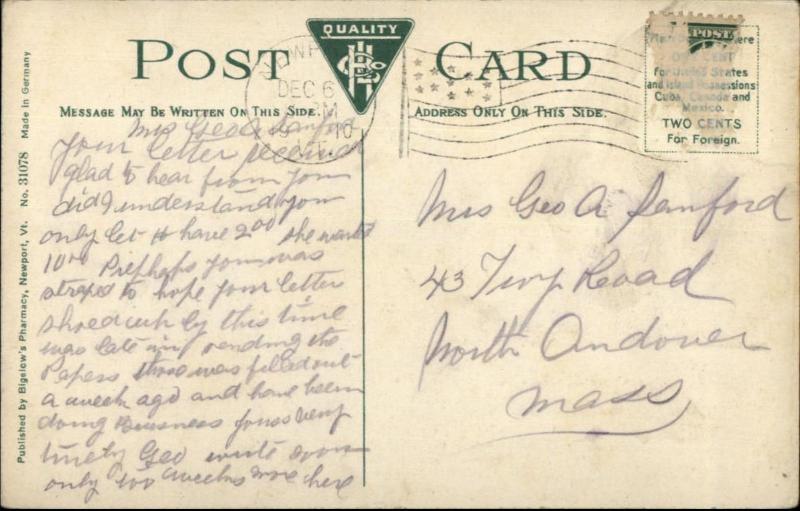 POST CARD
QUALITY
NEWPORT
DEC 6
PM
10
VT.
MESSAGE MAY BE WRITTEN ON THIS SIDE.
ADDRESS ONLY ON THIS SIDE.
POST
ONE CENT
for United States
and Island Possessions
Cuba, Canada and
Mexico.
TWO CENTS
For Foreign.
Published by Bigelow's Pharmacy, Newport, Vt. No. 31078 Made in Germany
Mrs Geo A Sanford
Your letter received
glad to hear from you
did I understand you
only let H have 2⁰⁰ she wanted
10⁰⁰ Prephaps you was
straped to hope your letter
by this time
was late in sending the
Papers those was filled out
a week ago and have been
doing Buisness yours very
Geo write soon
only too weeks more here
Mrs Geo A Sanford
43 Road
North Andover
Mass